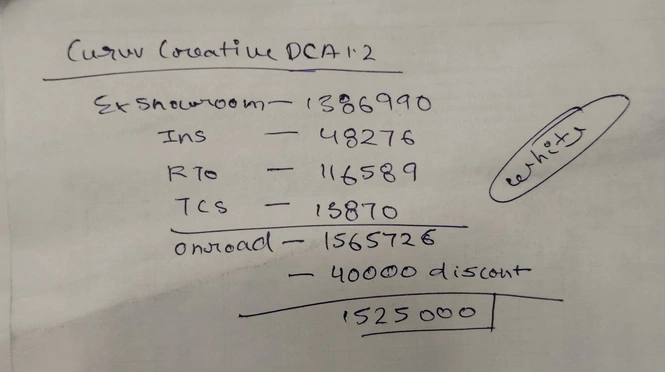 Curvv Creative DCA 1.2
Ex Showroom - 1386990
Ins - 48276
RTO - 116589
TCS - 13870
Onroad - 1565726
- 40000 discont
1525000
white